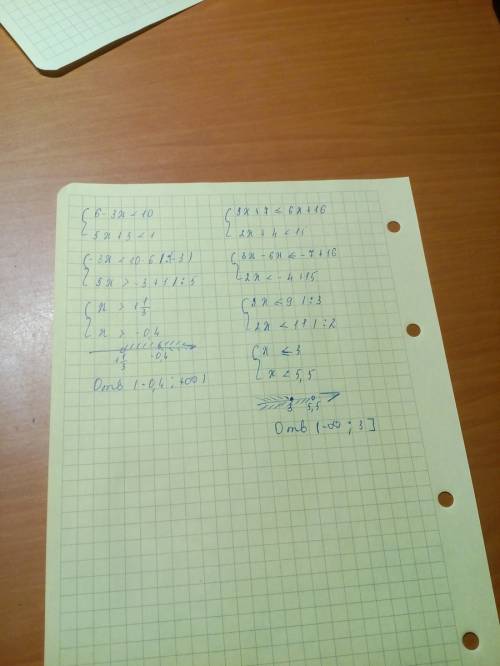 {6-3x<10
{5x+3<1
{-3x<10-6 |:(-3)
{5x>-3+1 |:5
{x>-1 1/3
{x>-0,4
-1 1/3 -0,4
Отв (-0,4; +∞)
{9x+7≤6x+16
{2x+4<15
{3x-6x≤-7+16
{2x<-4+15
{3x≤9 |:3
{2x<11 |:2
{x≤3
{x<5,5
3 5,5
Отв (-∞; 3]